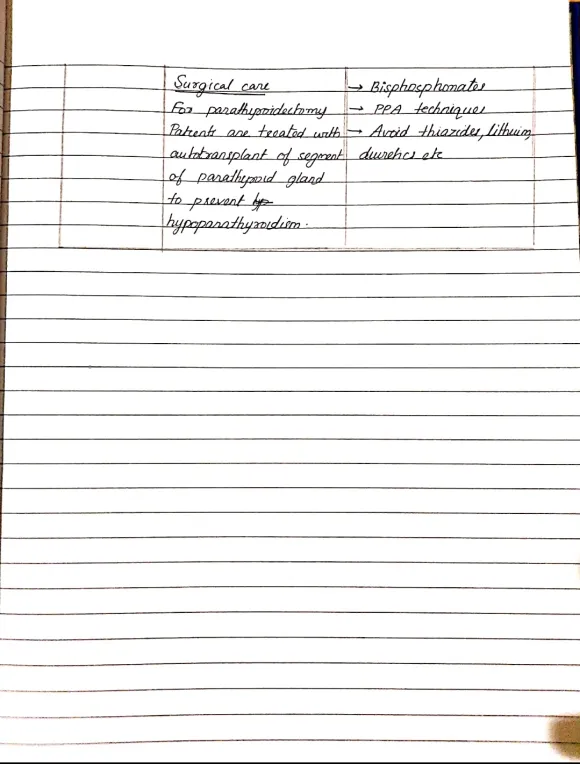 Surgical care
For parathyroidectomy
Patients are treated with
autotransplant of segment
of parathyroid gland
to prevent hp
hypoparathyroidism.
→ Bisphosphonates
→ PPA techniques
→ Avoid thiazides, Lithuim,
diuretics etc